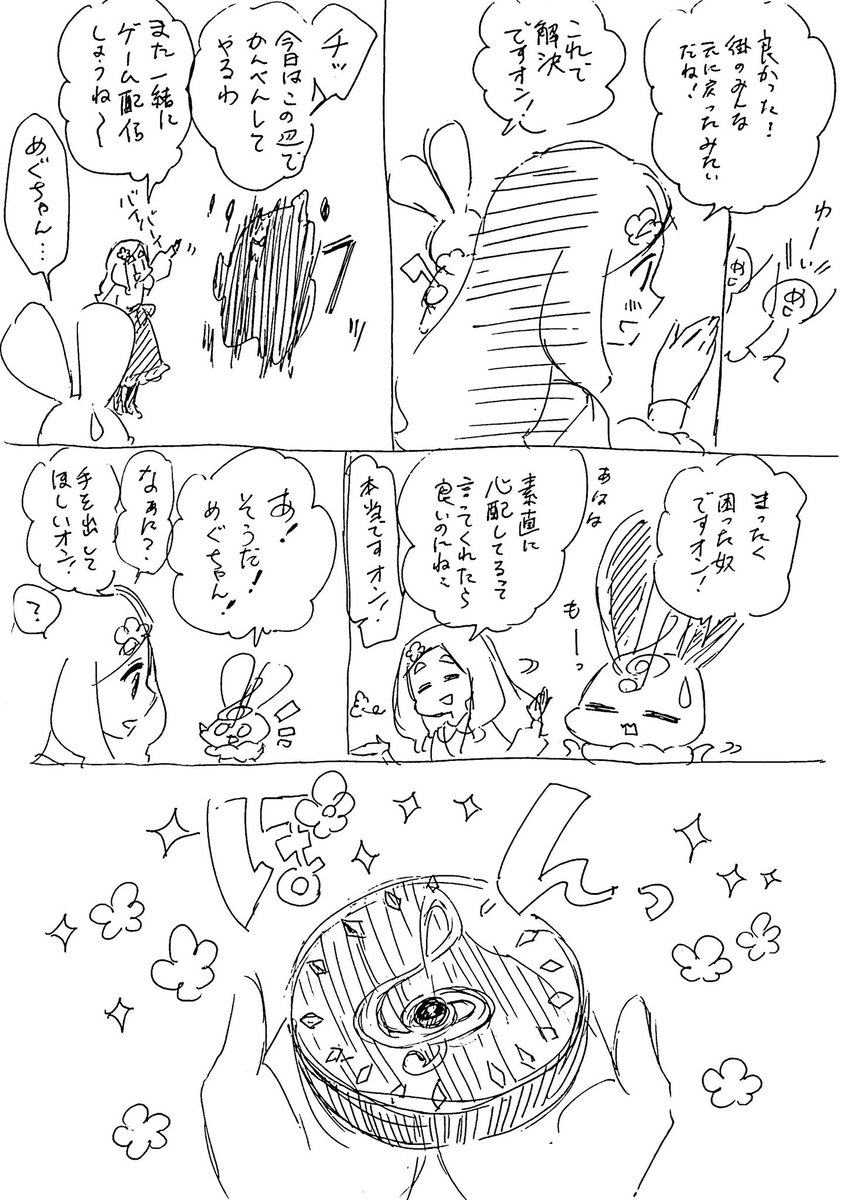 良かった!
街のみんな
元に戻ったみたい
だね!
わーい
これで
解決
ですオン!
チッ
今日はこの辺で
かんべんして
やるわ
フッ
また一緒に
ゲーム配信
しようね〜
バイバイ
めぐちゃん…
まったく
困った奴
ですオン!
もーっ
あはは
素直に
心配してるって
言ってくれたら
良いのにね
本当ですオン!
あ!
そうだ!
めぐちゃん!
なぁに?
手を出して
ほしいオン!
?